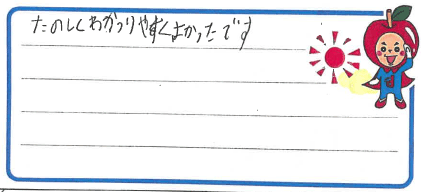 たのしくわかつりやすくよかったです